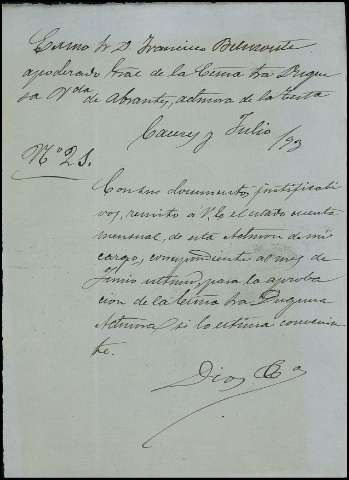 Exmo Sr D Francisco Belmonte
apoderado Gral de la Exma Sra Duque
sa Vda de Abrantes, admora de la Testa
Caceres y Julio /93
Nº 21.
Con sus documentos justificati
vos, remito á V. el estado cuenta
mensual, de esta Admon de mi
cargo, correspondiente al mes de
Junio ultimo, para la aproba
cion de la Exma Sra Duquesa
Admora, si lo estima convenien
te.
Dios &ª